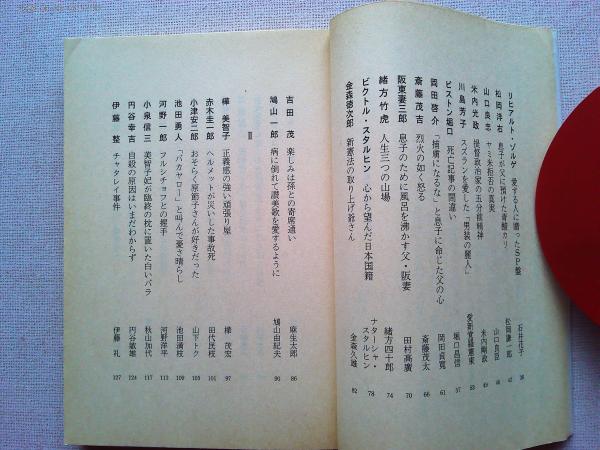 リヒアルト・ゾルゲ 愛する人に贈ったSP盤 石井花子 38
松岡洋右 息子が父に預けた青酸カリ 松岡謙一郎 42
山口良忠 ヤミ米拒否の真実 山口良臣 46
米内光政 提督政治家の五分前精神 米内剛政 49
川島芳子 スズランを愛した「男装の麗人」 愛新覚羅憲東 53
ピストン堀口 死亡記事の間違い 堀口昌信 57
岡田啓介 「捕虜になるな」と息子に命じた父の心 岡田貞寛 61
斎藤茂吉 烈火の如く怒る 斎藤茂太 66
阪東妻三郎 息子のために風呂を沸かす父・阪妻 田村高廣 70
緒方竹虎 人生三つの山場 緒方四十郎 74
ビクトル・スタルヒン 心から望んだ日本国籍 ナターシャ・スタルヒン 78
金森徳次郎 新憲法の取り上げ爺さん 金森久雄 82
吉田 茂 楽しみは孫との寄席通い 麻生太郎 86
鳩山一郎 病に倒れて讃美歌を愛するように 鳩山由紀夫 90
Ⅱ
樺 美智子 正義感の強い頑張り屋 樺 茂宏 97
赤木圭一郎 ヘルメットが災いした事故死 田代茂枝 101
小津安二郎 おそらく原節子さんが好きだった 山下トク 105
池田勇人 「バカヤロー」と叫んで憂さ晴らし 池田満枝 109
河野一郎 フルシチョフとの握手 河野洋平 113
小泉信三 美智子妃が臨終の枕に置いた白いバラ 秋山加代 117
円谷幸吉 自殺の原因はいまだわからず 円谷敏雄 124
伊藤 整 チャタレイ事件 伊藤 礼 127